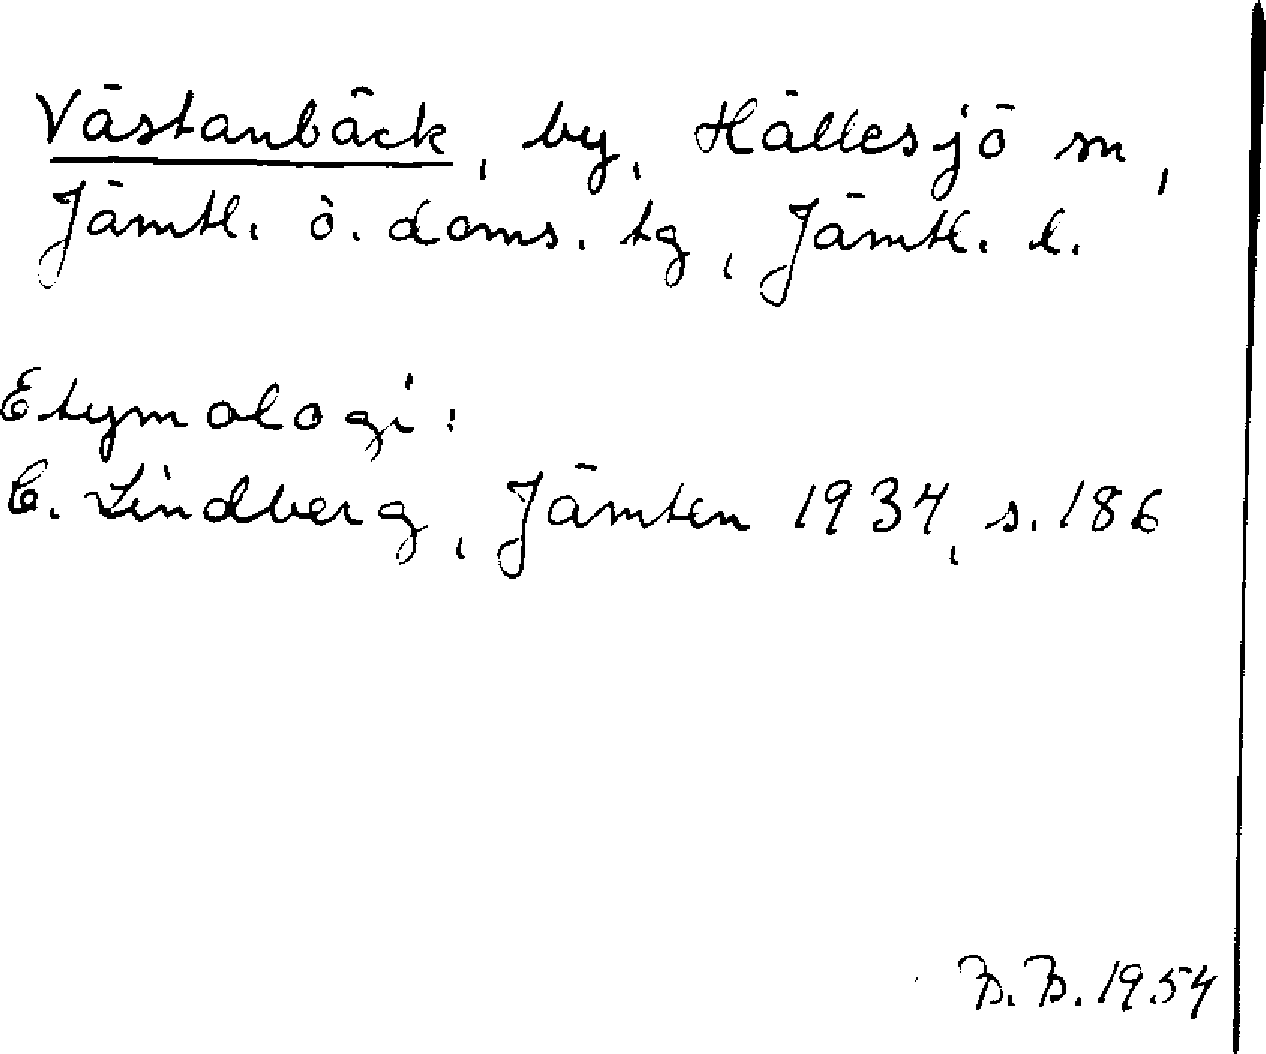 Västanbäck, by, Hällesjö sn,
Jämtl. ö. doms. tg, Jämtl. l.
Etymologi:
C. Lindberg, Jämten 1934, s. 186
B. B. 1954